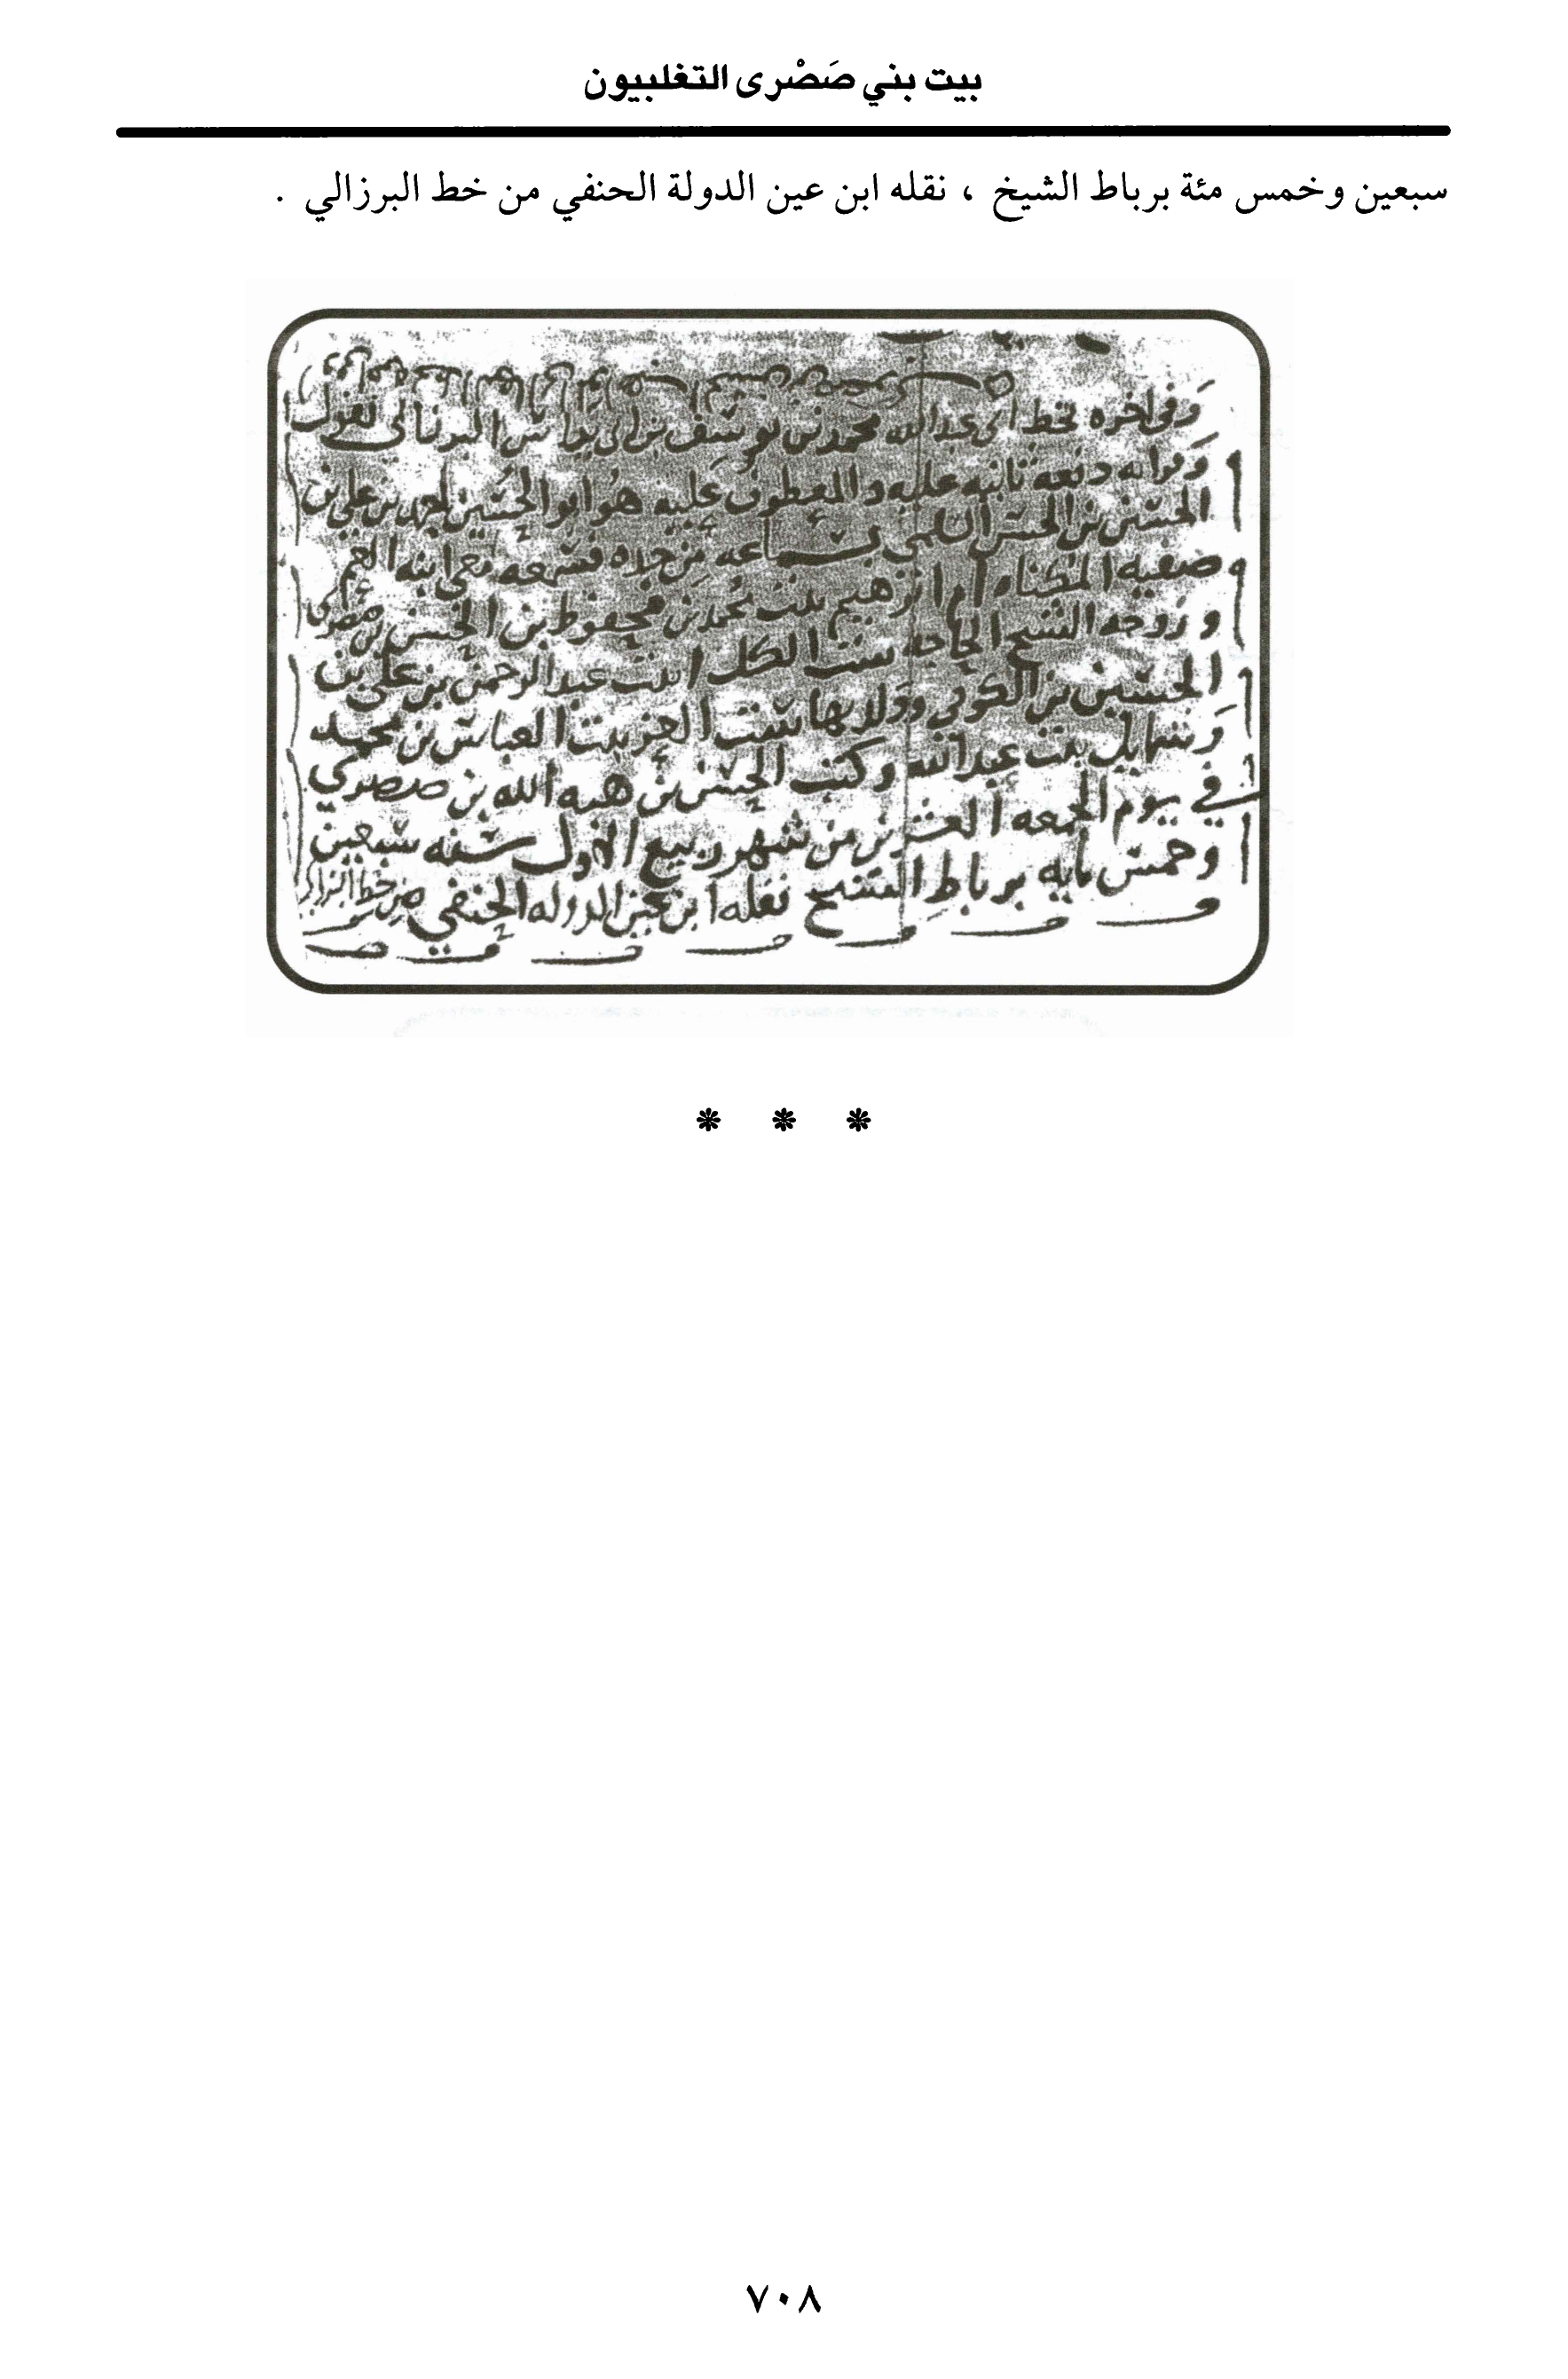 بيت بني صَصْرى التغلبيون
سبعين وخمس مئة برباط الشيخ ، نقله ابن عين الدولة الحنفي من خط البرزالي .
وفي اخره بخط ابي عبد الله محمد بن يوسف بن البرزالي يقول
وقراته دفعه ثانيه عليه والمعطوف عليه هو ابو الحسين احمد بن علي بن
الحسين بن الحسن السلمي بسماعه من جده فسمعه معي ابنه ابو
وصفيه المكناه ام ابرهيم بنت محمد بن محفوظ بن الحسن بن صصرى
وزوجه الشيخ الحاجه ست الكل بنت عبد الرحمن بن علي بن
الحسين بن الكوفي وولدتها ست العز بنت العباس بن محمد
وشمايل بنت عبد الله وكتب الحسن بن هبه الله بن صصرى
في يوم الجمعه العشرين من شهر ربيع الاول سنه سبعين
وخمس مايه برباط الشيخ نقله ابن عين الدوله الحنفي من خط البرزالي
* * *
٧٠٨